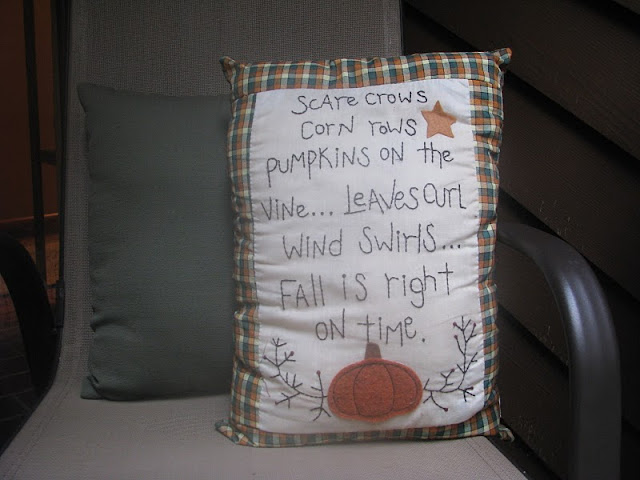 ScAre crows
corn rows
pumpkins on the
vine... LeAves curl
wind swirls...
FAll is right
on time.